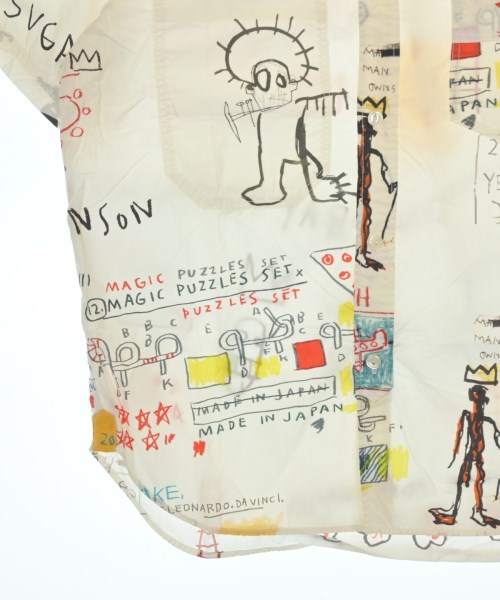 SVGA
MAN
OWNS
JAPAN
NSON
MAGIC PUZZLES SET
12. MAGIC PUZZLES SET x
PUZZLES SET
H
A
B
B
C
E
B
C
E
A
B
D
F
K
D
K
D
MADE IN JAPAN
MADE IN JAPAN
K
F
20
AKE.
LEONARDO.DA VINCI.
MAN